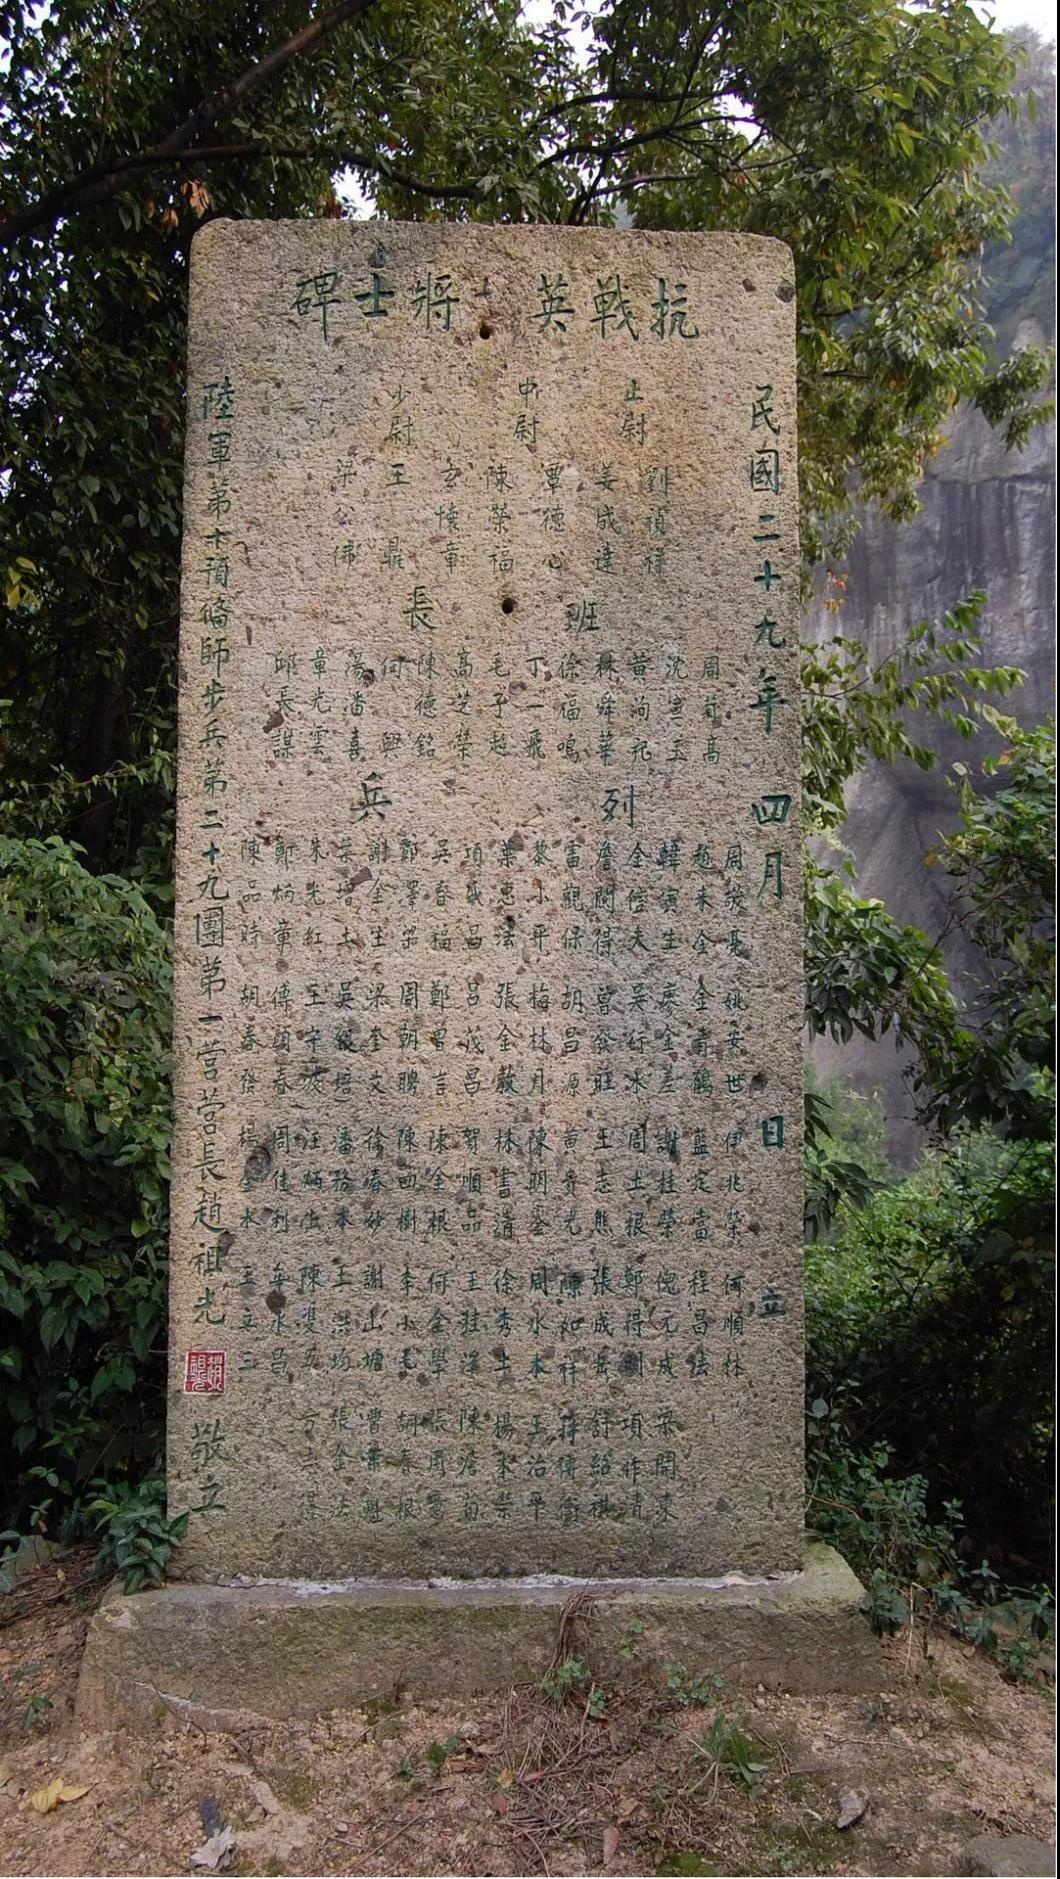 抗戰英 士將士碑
民國二十九年 四月 日 立
上尉
劉禎祥
姜成達
中尉
覃德心
陳榮福
玄懷章
少尉
王鼎
梁公佛
班長
周苛高
黃洵
林舜華
徐福鳴
丁一飛
毛予超
高芝榮
陳德銘
何興
湯潘喜
章光雲
邱長謀
列兵
周敬 姚安世 伊兆榮 何順林
趙未金 金青鶴 藍定當 程昌法
韓寅生 廖金差 謝桂榮 倪元成 梁開東
金信夫 吳行水 周土根 鄭得 項作清
詹關得 曾發旺 王志熊 張成 舒紹祺
雷觀保 胡昌源 黃貴光 陳如祥 傳衡
黎小平 梅林月 陳明奎 周水本 王治平
葉惠法 張金 林書清 徐秀土 楊禾榮
項成昌 呂茂昌 賀順品 王桂 陳
吳春福 鄭曾言 陳金根 何金學 張周意
鄭澤 周朝聘 陳四樹 李小毛 胡春根
謝金生 梁奎文 徐春砂 謝山塘 曹
葉增土 吳 潘務本 王洪均 張金法
朱光紅 王守 汪炳生 陳雙五 方
鄭炳章 傅 春 周佳利 水昌
陳品時 胡春發 楊金水 王立三
陸軍第十預備師步兵第二十九團第一營營長趙祖光 敬立